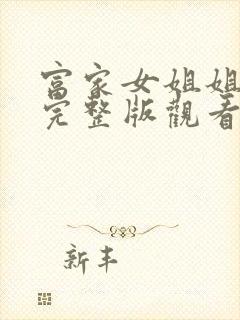 富家女姐姐
完整版觀看
新丰